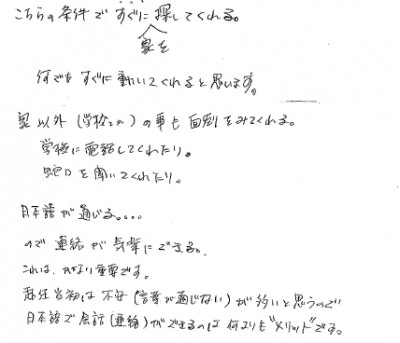 こちらの条件ですぐに探してくれる。
家を
何でもすぐに動いてくれると思います。
家以外(学校etc)の事も面倒をみてくれる。
学校に電話してくれたり。
蛇口を聞いてくれたり。
日本語が通じる。。。。
ので連絡が気楽にできる。
これは、かなり重要です。
赴任当初は不安(言葉が通じない)が多いと思うので
日本語で会話(連絡)ができるのは何よりも"メリット"です。